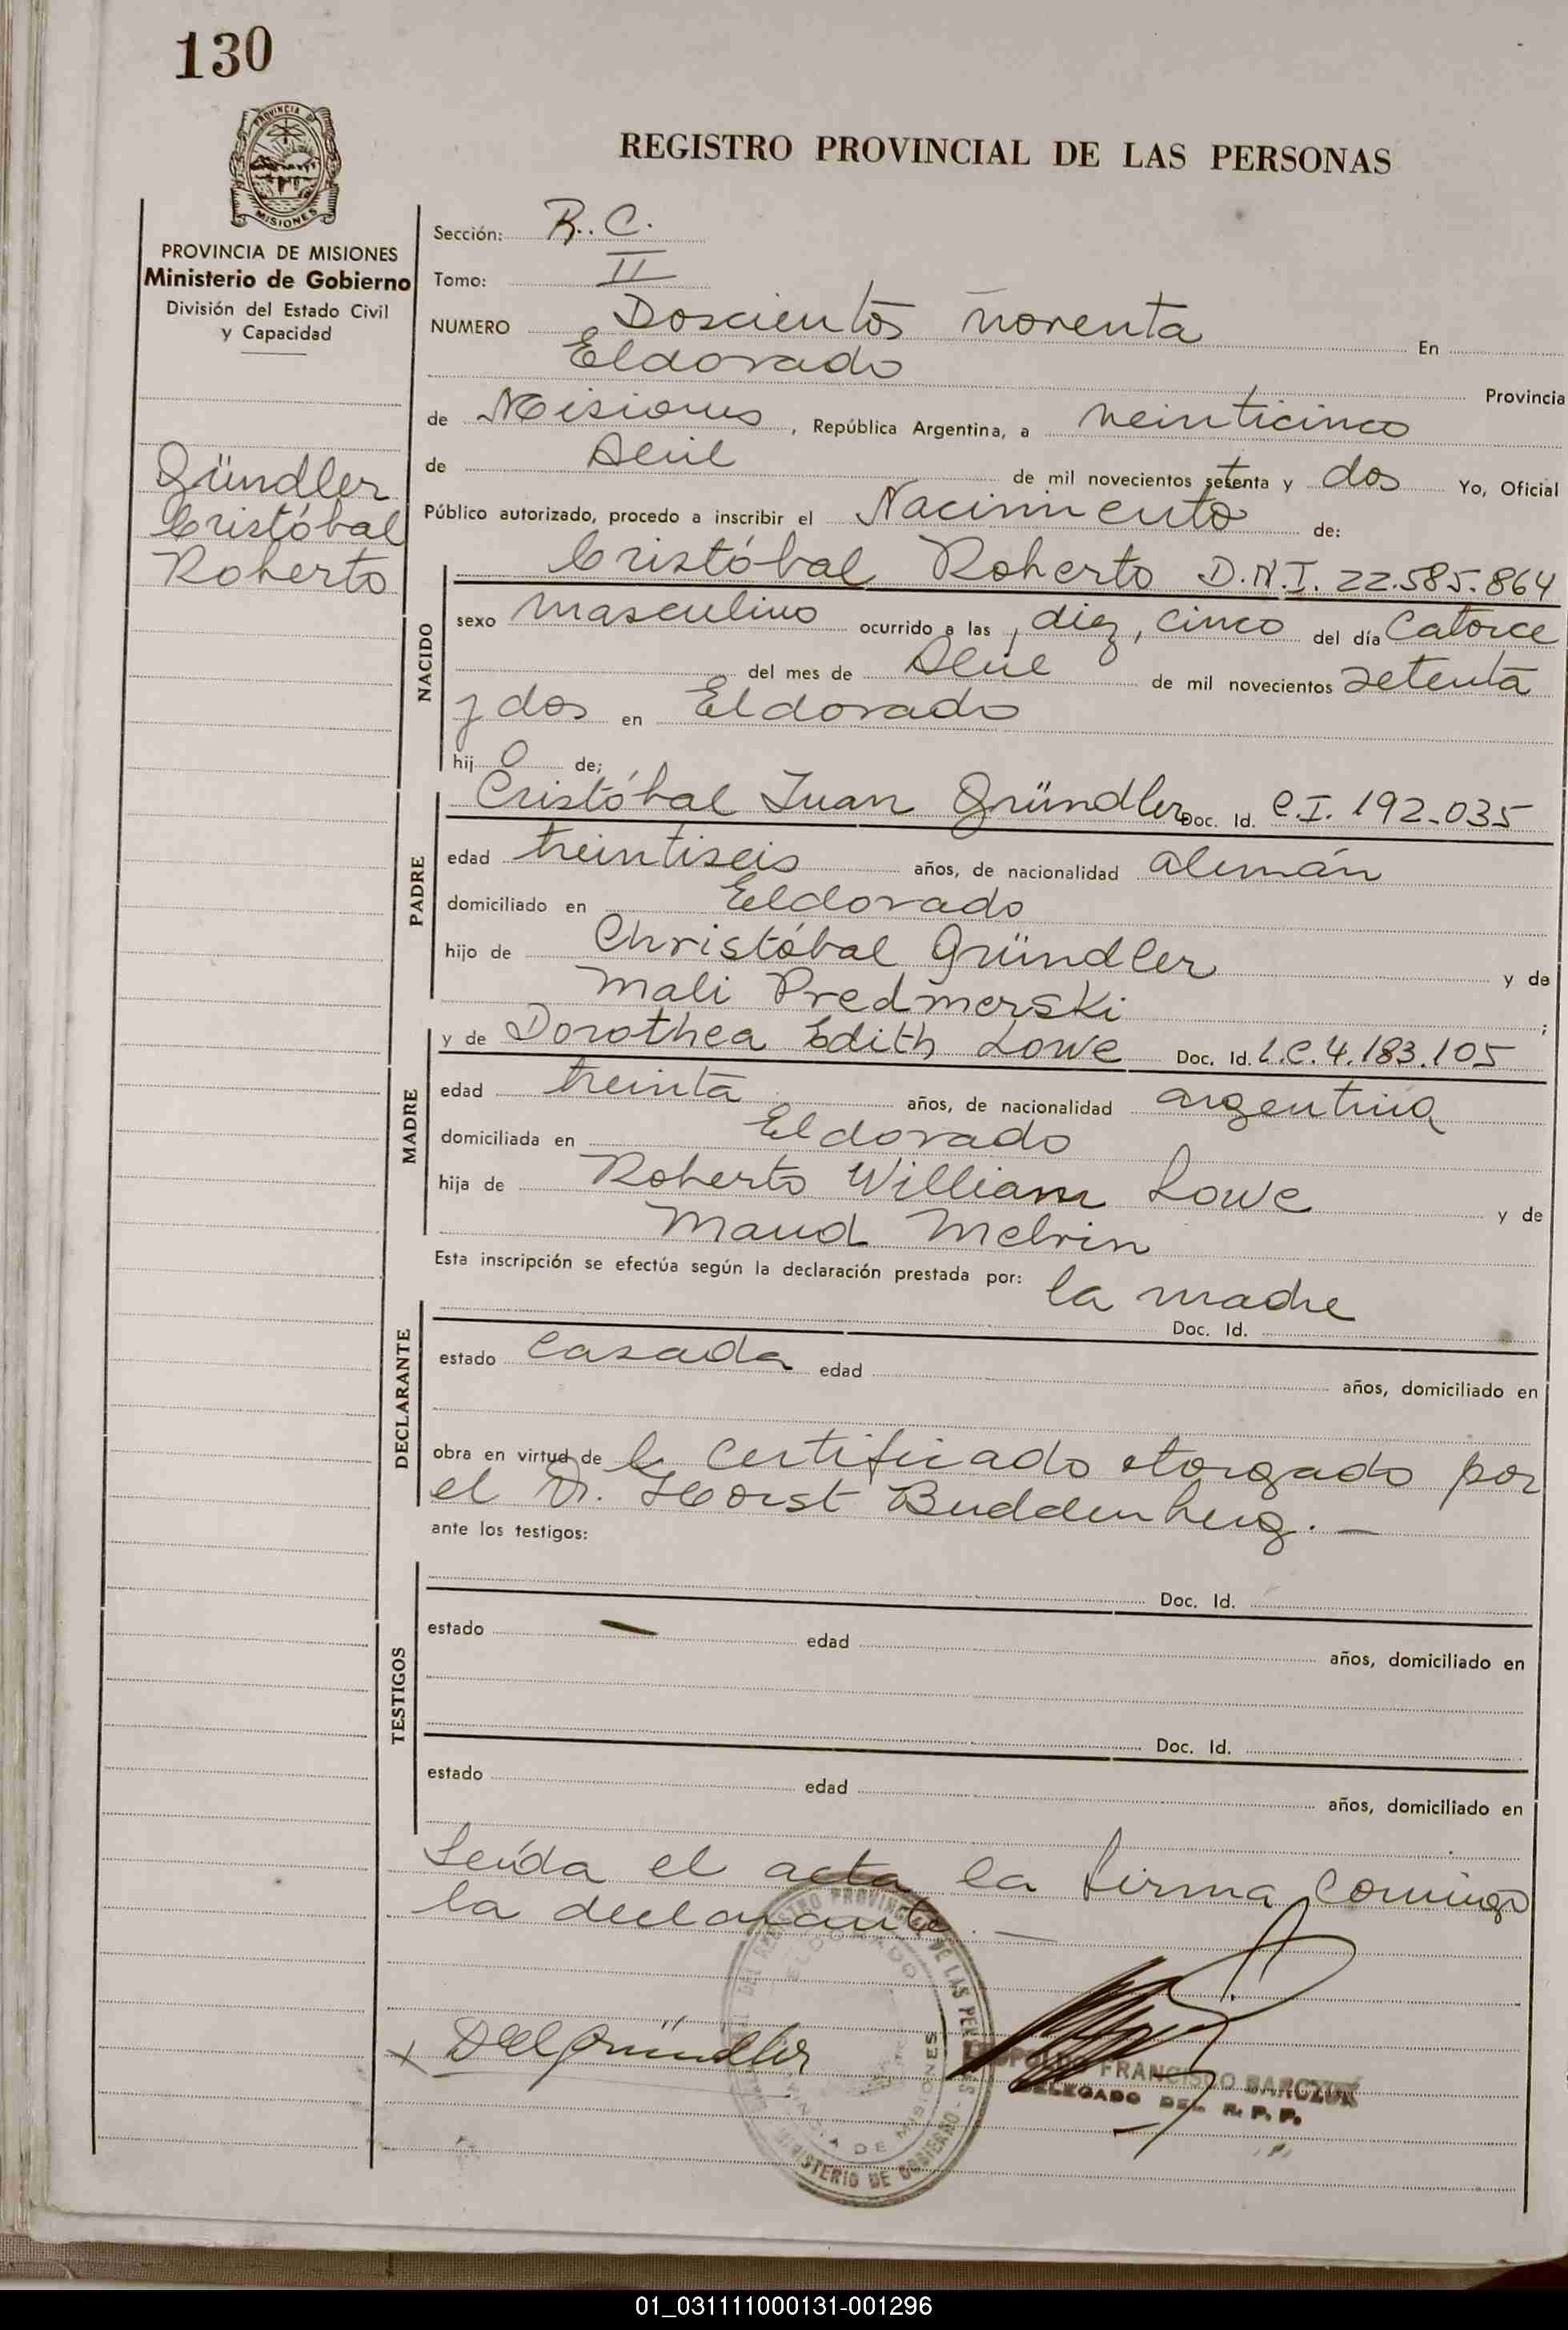 130
PROVINCIA DE
MISIONES
REGISTRO PROVINCIAL DE LAS PERSONAS
PROVINCIA DE MISIONES
Ministerio de Gobierno
División del Estado Civil
y Capacidad
Gründler
Cristóbal
Roberto
Sección: R.C.
Tomo: II
NUMERO Doscientos noventa En
Eldorado Provincia
de Misiones, República Argentina, a veinticinco
de Abril de mil novecientos setenta y dos Yo, Oficial
Público autorizado, procedo a inscribir el Nacimiento de:
NACIDO
Cristóbal Roberto D.N.I. 22.585.864
sexo masculino ocurrido a las, diez, cinco del día Catorce
del mes de Abril de mil novecientos setenta
y dos en Eldorado
hijo de;
PADRE
Cristóbal Juan Gründler Doc. Id. C.I. 192.035
edad treintiseis años, de nacionalidad alemán
domiciliado en Eldorado
hijo de Christóbal Gründler y de
Mali Predmerski ;
MADRE
y de Dorothea Edith Lowe Doc. Id. L.C. 4.183.105
edad treinta años, de nacionalidad argentina
domiciliada en Eldorado
hija de Roberto William Lowe y de
Maud Melvin
Esta inscripción se efectúa según la declaración prestada por: la madre
DECLARANTE
Doc. Id.
estado casada edad años, domiciliado en
obra en virtud de certificado otorgado por
el Dr. Horst Buddenberg. —
ante los testigos:
TESTIGOS
Doc. Id.
estado — edad años, domiciliado en
Doc. Id.
estado edad años, domiciliado en
Leída el acta la firma conmigo
la declarante. —
x Gründler
DEL REGISTRO PROVINCIAL DE LAS PERSONAS
ELDORADO
PROVINCIA DE MISIONES
MINISTERIO DE GOBIERNO
LEOPOLDO FRANCISCO
DELEGADO DEL R. P. P.
01_031111000131-001296